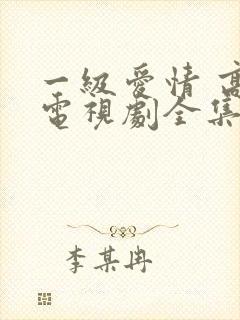 一級愛情 高
電視劇全集
李某冉